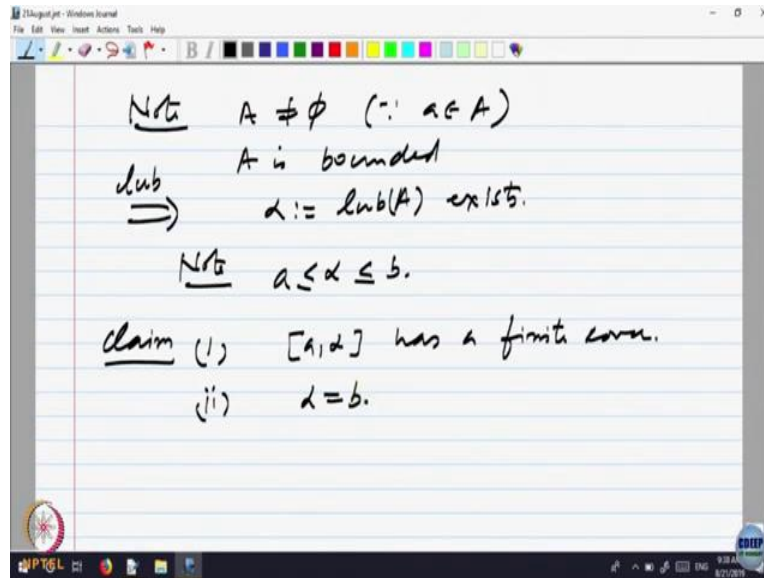 21August.jnt - Windows Journal
File Edit View Insert Actions Tools Help
Note A ≠ ϕ (∵ a ∈ A)
A is bounded
lub
⟹ α := lub(A) exists.
Note a ≤ α ≤ b.
Claim (i) [a, α] has a finite cover.
(ii) α = b.
NPTEL
CDEEP
ENG
9:38 AM
8/21/2019